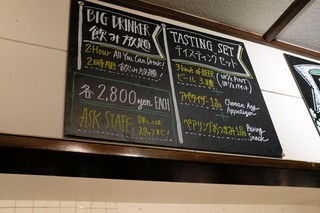 BIG DRINKER
飲み放題
2-Hour All You Can Drink!
2時間 飲み放題!
各 2,800yen EACH
ASK STAFF
スタッフまで!
TASTING SET
テイスティングセット
3 kinds of BEER
ビール3種
1/2 PINT
1/2パイント
アペタイザー1品
Choose Any
Appetizer
+
ペアリングおつまみ1品
Pairing
snack